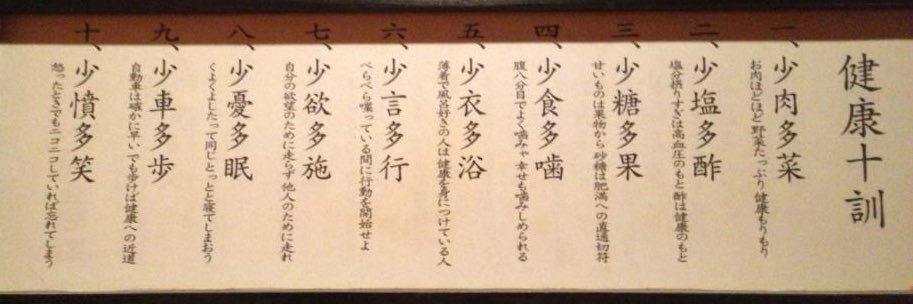 健康十訓
一、少肉多菜
お肉ほどほど野菜たっぷり健康もりもり
二、少塩多酢
塩分摂りすぎは高血圧のもと酢は健康のもと
三、少糖多果
甘いものは果物から砂糖は肥満への直通切符
四、少食多噛
腹八分目でよく噛みゃ幸せも噛みしめられる
五、少衣多浴
薄着で風呂好きの人は健康を身につけている人
六、少言多行
べらべら喋っている間に行動を開始せよ
七、少欲多施
自分の欲望のために走らず他人のために走れ
八、少憂多眠
くよくよしたって同じとっとと寝てしまおう
九、少車多歩
自動車は確かに早い、でも歩けば健康への近道
十、少憤多笑
怒ったときでもニコニコしていれば忘れてしまう